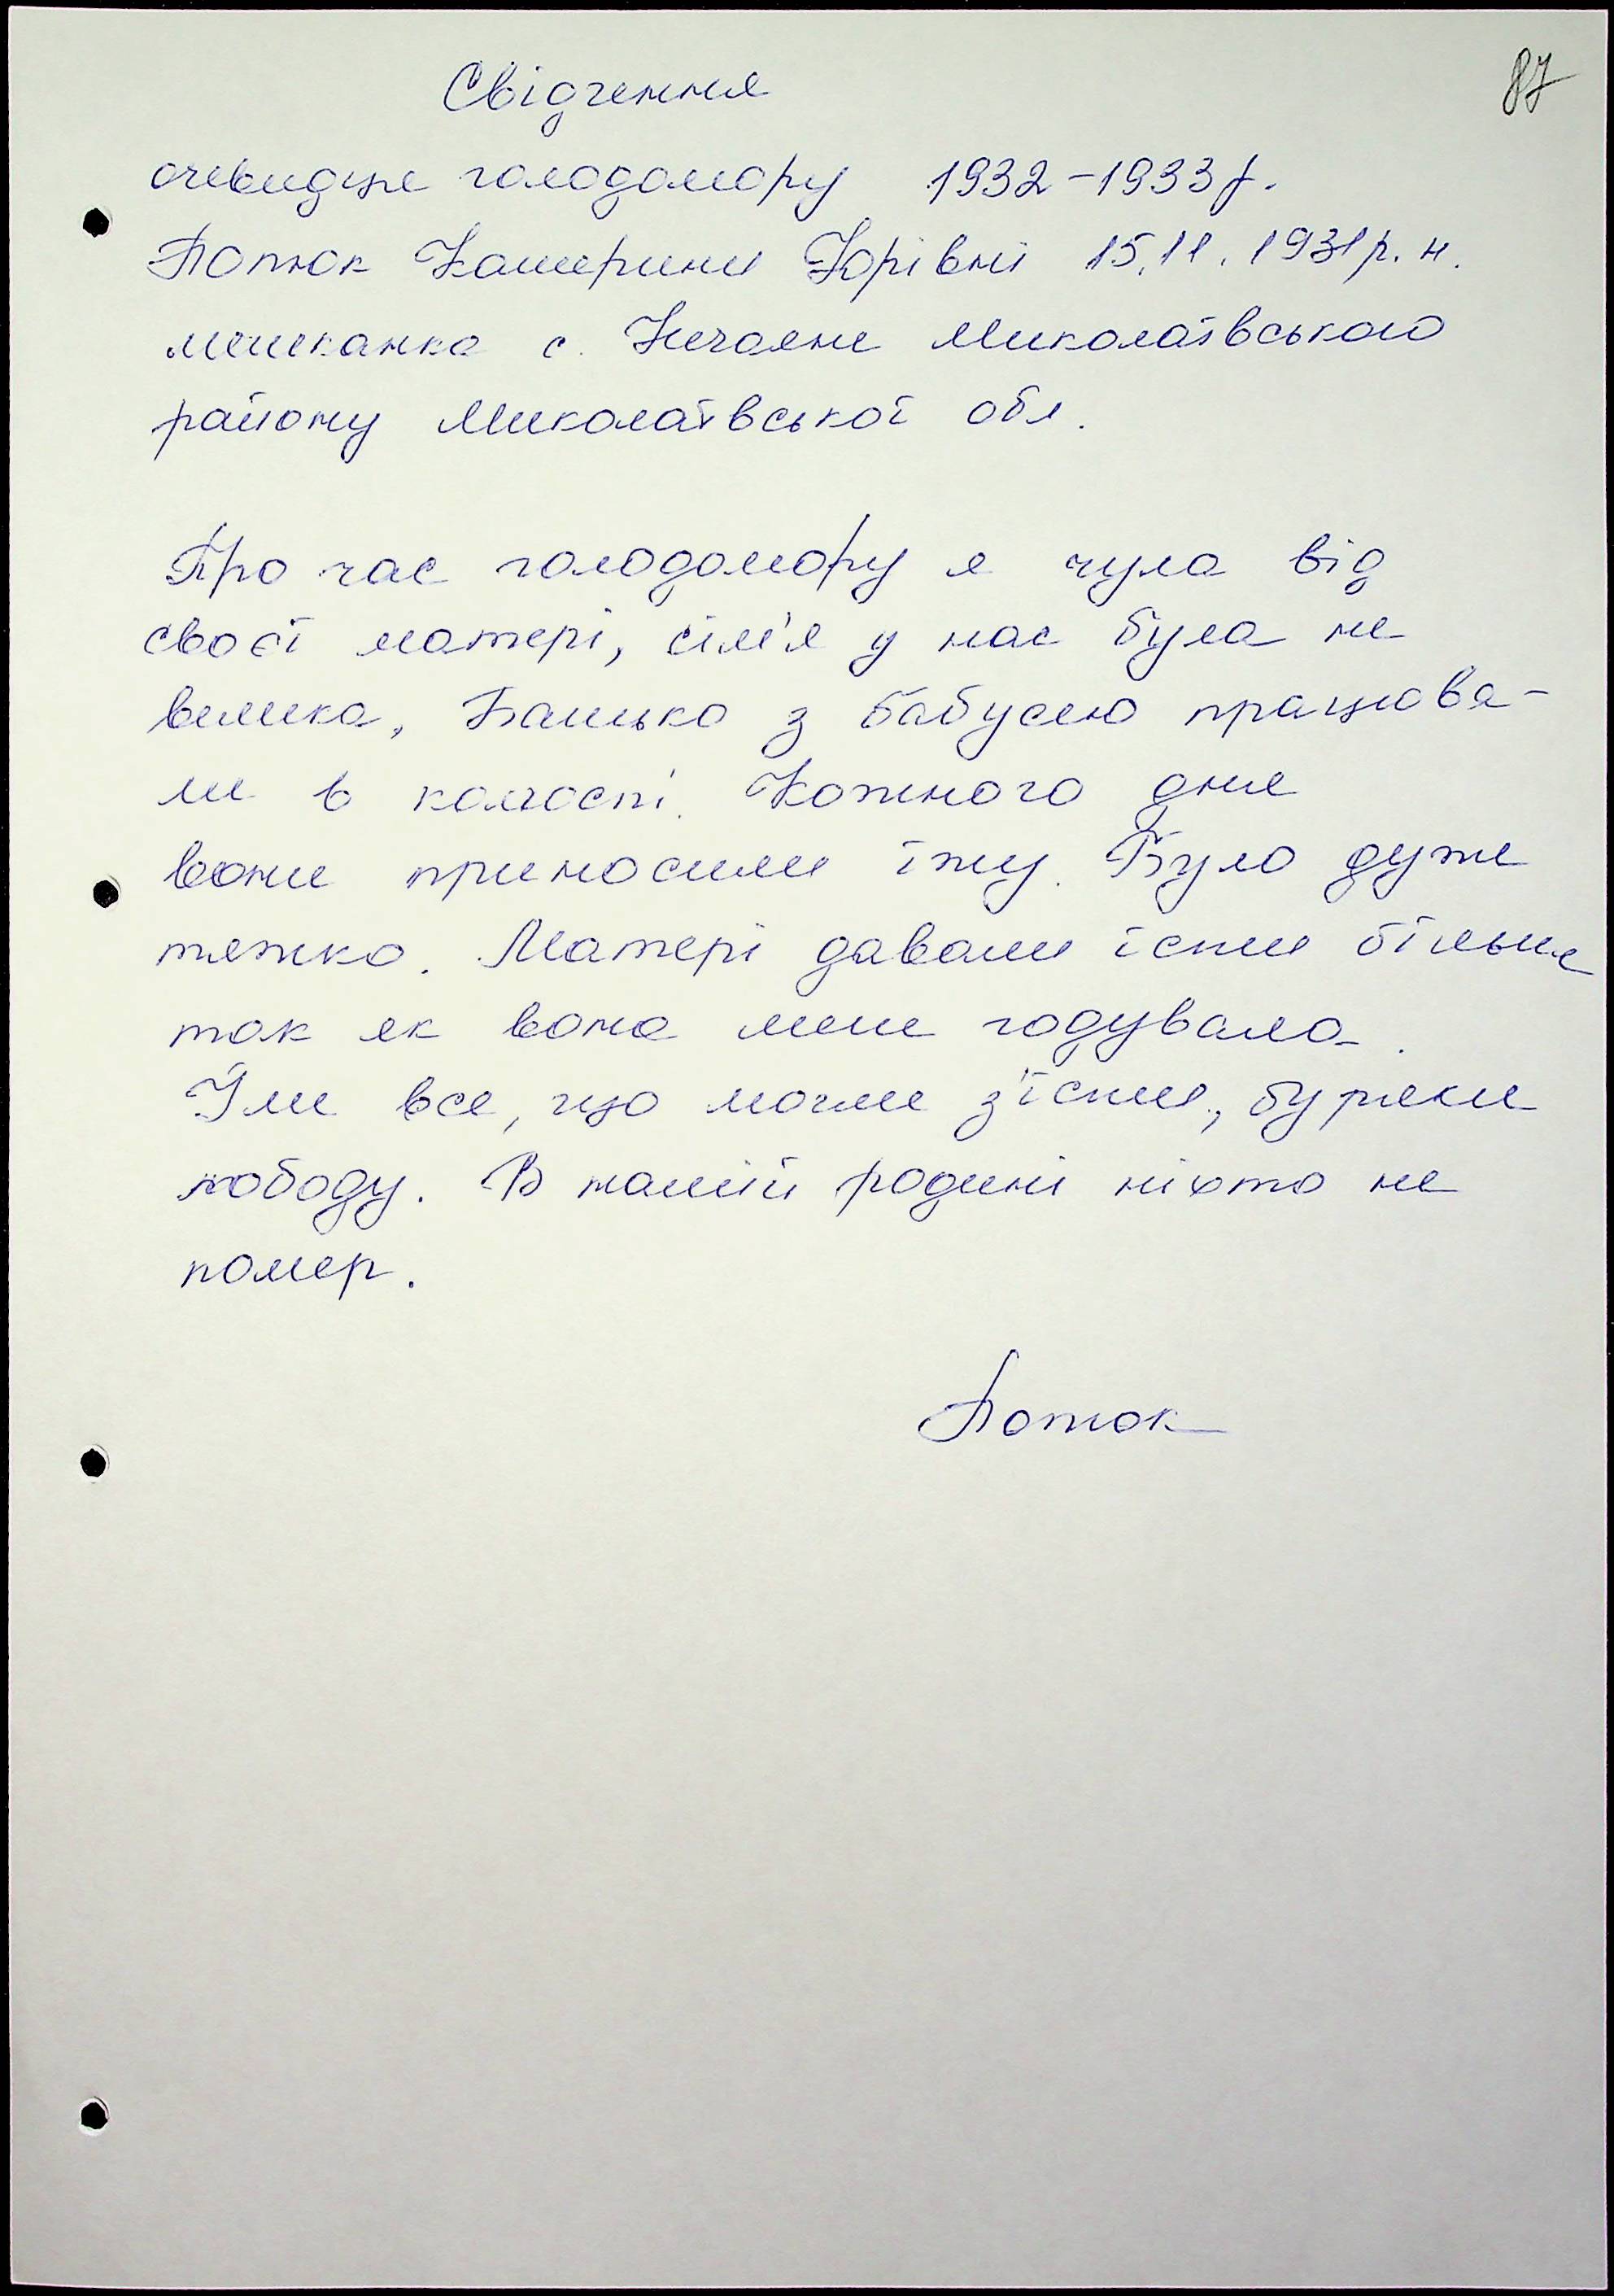 Свідчення
87
очевидця голодомору 1932-1933 р.
Потюк Катерини Юрівни 15.11.1931 р. н.
мешканка с. Нечаяне Миколаївського
району Миколаївської обл.
Про час голодомору я чула від
своєї матері, сім'я у нас була не
велика, Батько з бабусею працюва-
ли в колгоспі. Кожного дня
вони приносили їжу. Було дуже
тяжко. Матері давали їсти більше
так як вона мене годувала.
Їли все, що могли з'їсти, буряки
лободу. В нашій родині ніхто не
помер.
Потюк